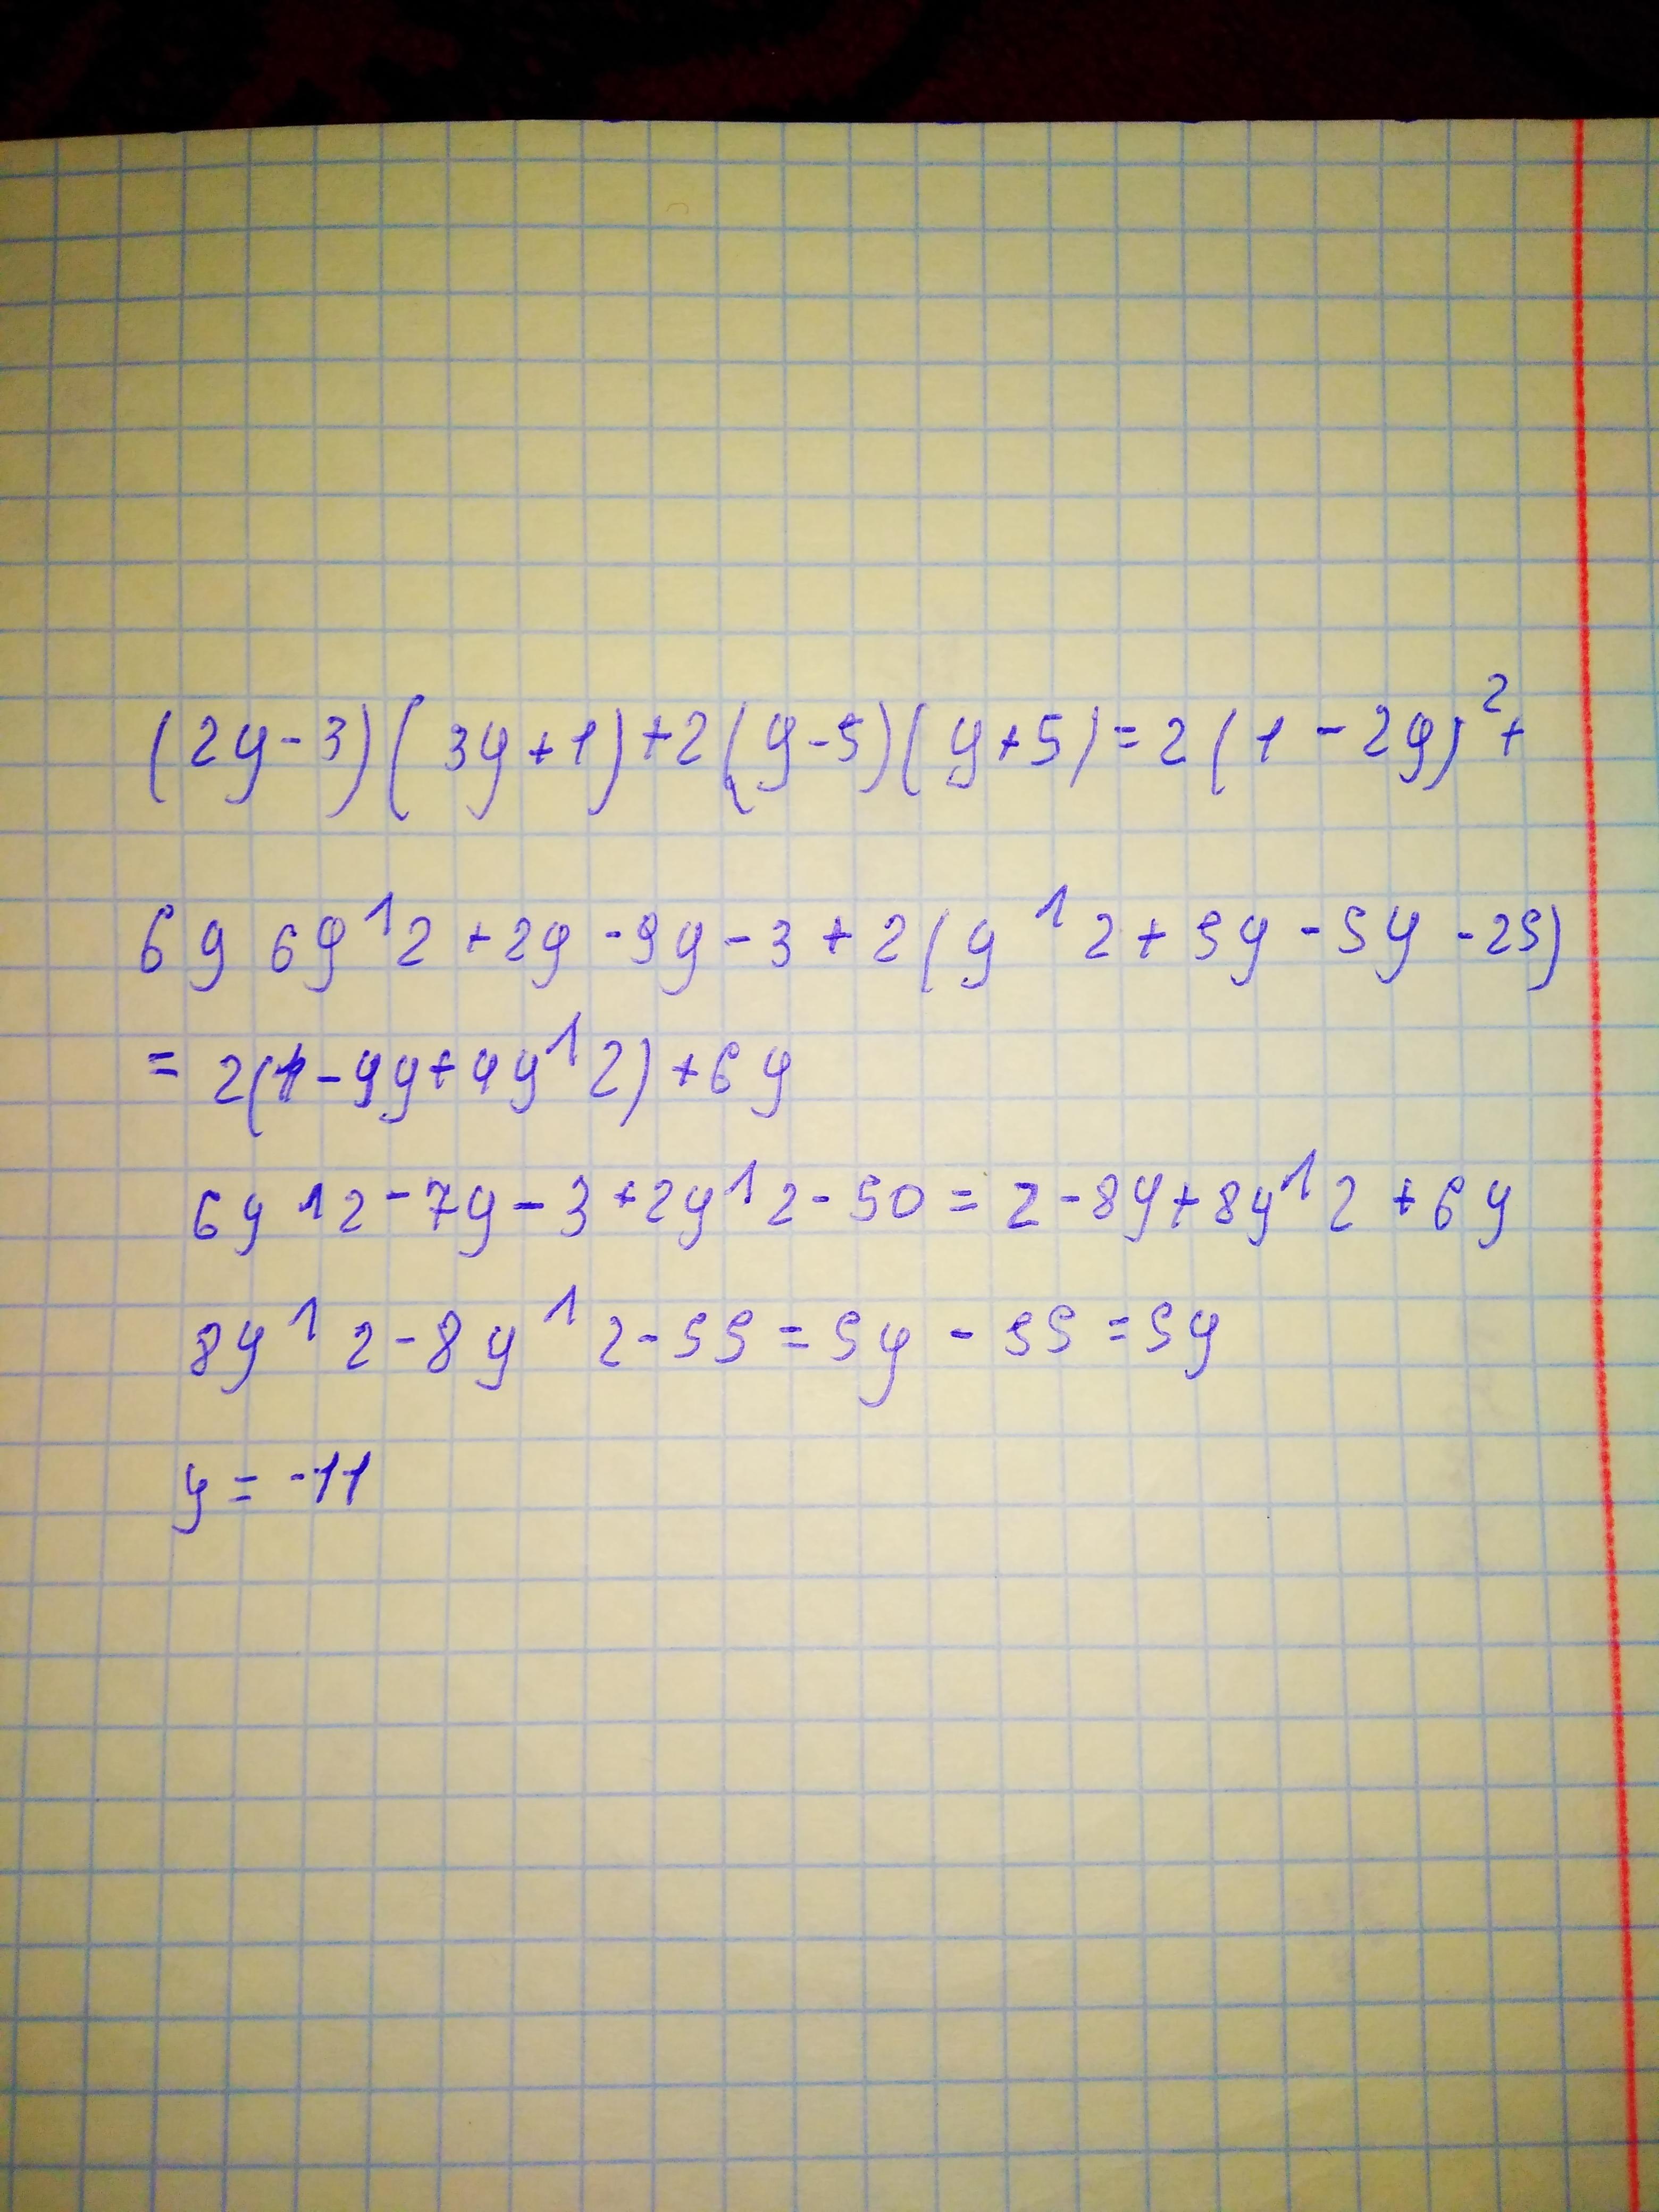 (2y-3)(3y+1)+2(y-5)(y+5)=2(1-2y)²+
6y 6y^2+2y-9y-3+2(y^2+5y-5y-25)
=2(1-4y+4y^2)+6y
6y^2-7y-3+2y^2-50=2-8y+8y^2+6y
8y^2-8y^2-55=5y-55=5y
y=-11